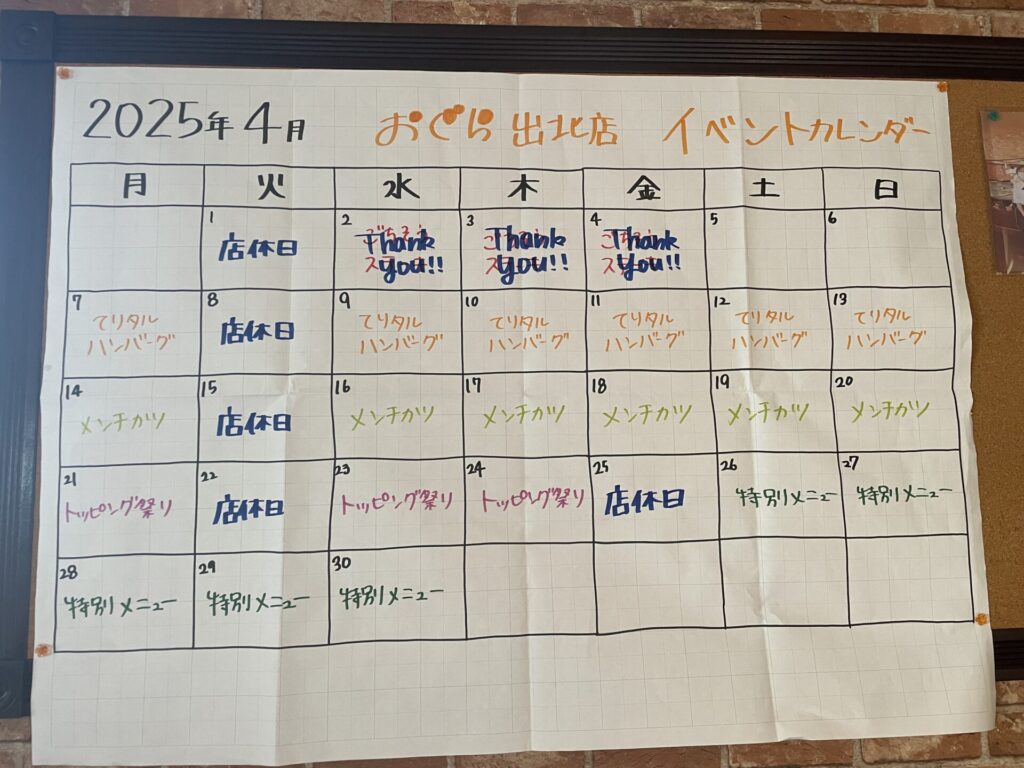 2025年4月 おぐら 出北店 イベントカレンダー
月 火 水 木 金 土 日
1 2 3 4 5 6
店休日 Thank you!! Thank you!! Thank you!!
7 8 9 10 11 12 13
てりタル ハンバーグ 店休日 てりタル ハンバーグ てりタル ハンバーグ てりタル ハンバーグ てりタル ハンバーグ てりタル ハンバーグ
14 15 16 17 18 19 20
メンチカツ 店休日 メンチカツ メンチカツ メンチカツ メンチカツ メンチカツ
21 22 23 24 25 26 27
トッピング祭り 店休日 トッピング祭り トッピング祭り 店休日 特別メニュー 特別メニュー
28 29 30
特別メニュー 特別メニュー 特別メニュー